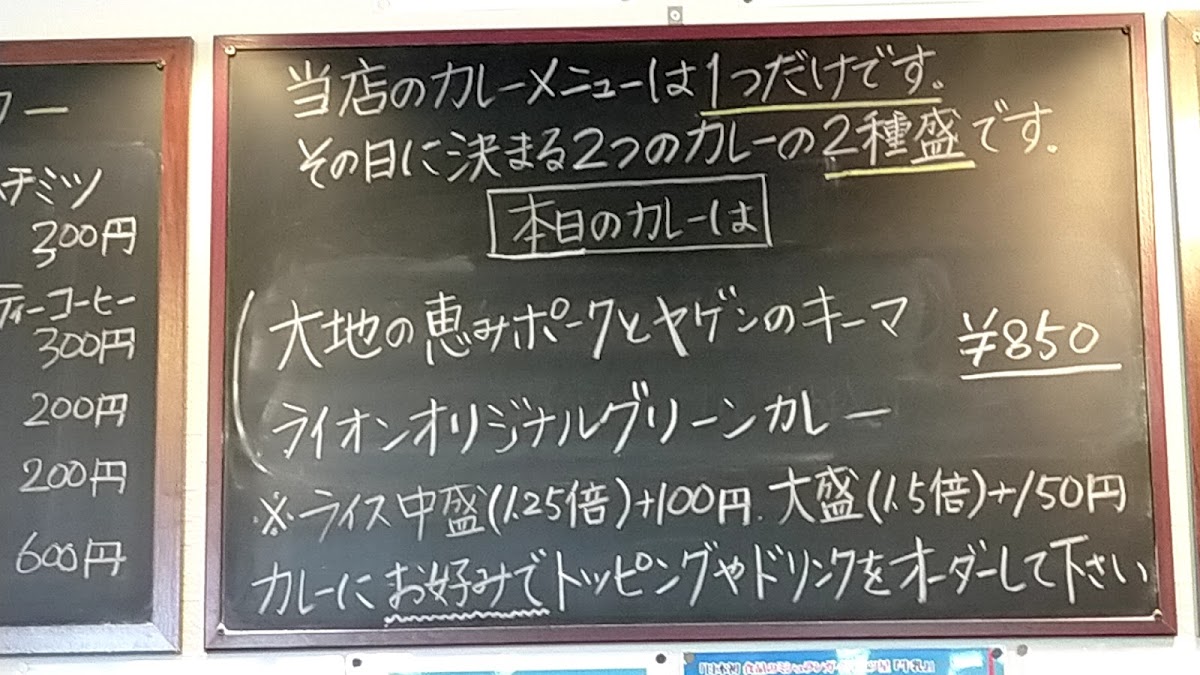 ー
チミツ
300円
ティーコーヒー
300円
200円
200円
600円
当店のカレーメニューは1つだけです。
その日に決まる2つのカレーの2種盛です。
本日のカレーは
大地の恵みポークとヤゲンのキーマ ¥850
ライオンオリジナルグリーンカレー
※ライス中盛(1.25倍)+100円. 大盛(1.5倍)+150円
カレーにお好みでトッピングやドリンクをオーダーして下さい